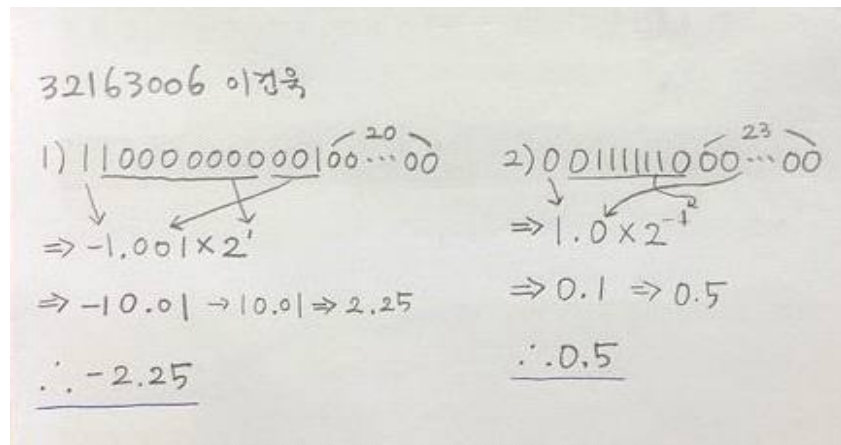 32163006 이건욱
20
1) 1 10000000 00100···00
⇒ -1.001×2¹
⇒ -10.01 → 10.01 ⇒ 2.25
∴ -2.25
23
2) 0 01111110 00···00
⇒ 1.0×2⁻¹
⇒ 0.1 ⇒ 0.5
∴ 0.5